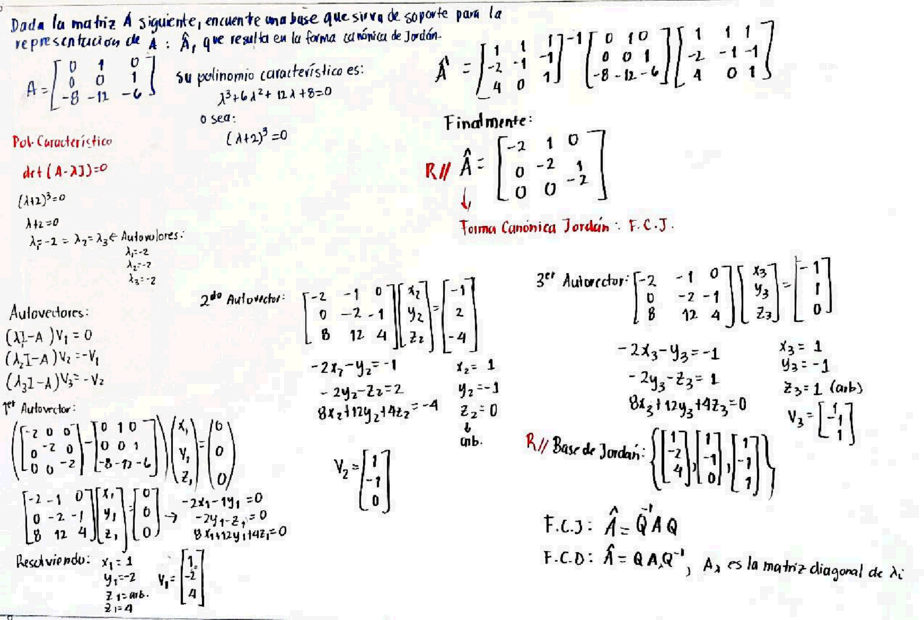 Dada la matriz A siguiente, encuentre una base que sirva de soporte para la
representación de A : Â, que resulta en la forma canónica de Jordán.
A = [0 1 0; 0 0 1; -8 -12 -6]
su polinomio característico es:
λ³+6λ²+12λ+8=0
o sea:
(λ+2)³=0
Pol. Característico
det(A-λI)=0
(λ+2)³=0
λ+2=0
λ₁=-2 = λ₂=λ₃ ← Autovalores:
λ₁=-2
λ₂=-2
λ₃=-2
Autovectores:
(λ₁I-A)V₁ = 0
(λ₂I-A)V₂=-V₁
(λ₃I-A)V₃=-V₂
1er Autovector:
([-2 0 0; 0 -2 0; 0 0 -2] - [0 1 0; 0 0 1; -8 -12 -6]) (x₁; y₁; z₁) = (0; 0; 0)
[-2 -1 0; 0 -2 -1; 8 12 4] [x₁; y₁; z₁] = [0; 0; 0] →
-2x₁-1y₁=0
-2y₁-z₁=0
8x₁+12y₁+4z₁=0
Resolviendo:
x₁=1
y₁=-2
z₁=arb.
z₁=4
V₁=[1; -2; 4]
2do Autovector: [-2 -1 0; 0 -2 -1; 8 12 4] [x₂; y₂; z₂] = [-1; 2; -4]
-2x₂-y₂=-1
-2y₂-z₂=2
8x₂+12y₂+4z₂=-4
x₂=1
y₂=-1
z₂=0
↓
arb.
V₂=[1; -1; 0]
Â = [1 1 1; -2 -1 -1; 4 0 1]⁻¹ [0 1 0; 0 0 1; -8 -12 -6] [1 1 1; -2 -1 -1; 4 0 1]
Finalmente:
R// Â = [-2 1 0; 0 -2 1; 0 0 -2]
↓
Forma Canónica Jordán : F.C.J.
3er Autovector: [-2 -1 0; 0 -2 -1; 8 12 4] [x₃; y₃; z₃] = [-1; 1; 0]
-2x₃-y₃=-1
-2y₃-z₃=1
8x₃+12y₃+4z₃=0
x₃=1
y₃=-1
z₃=1 (arb)
V₃=[1; -1; 1]
R// Base de Jordán: {[1; -2; 4], [1; -1; 0], [1; -1; 1]}
F.C.J: Â = Q⁻¹ A Q
F.C.D: Â = Q A_λ Q⁻¹, A_λ es la matriz diagonal de λi